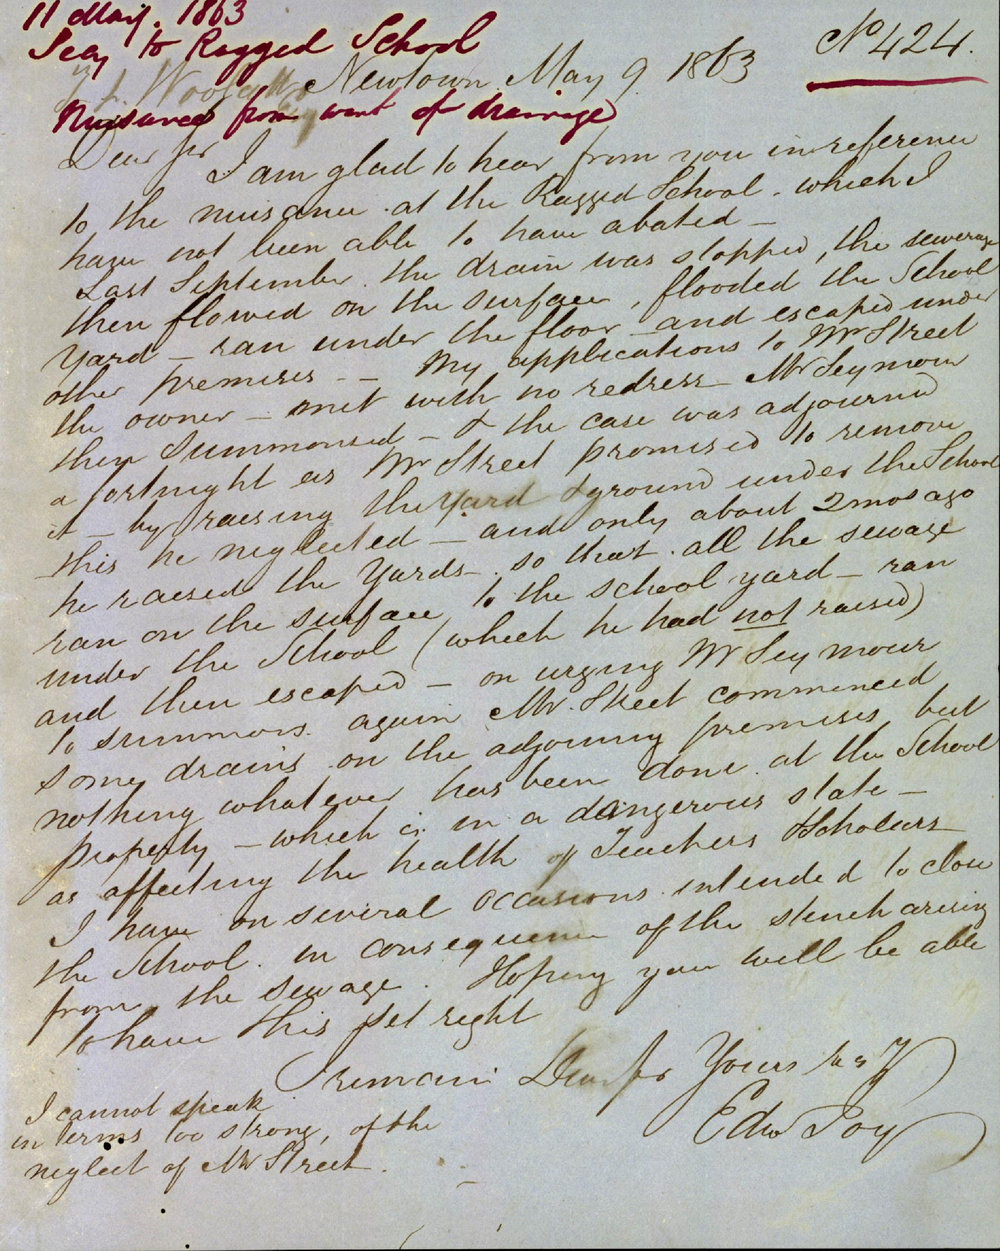 11 May. 1863
Secy to Ragged School
No 424.
Newtown May 9 1863
Nuisance from want of drainage
Dear Sir
I am glad to hear from you in reference
to the nuisance at the Ragged School. which I
have not been able to have abated —
Last September the drain was stopped, the sewerage
then flowed on the surface, flooded the School
Yard — ran under the floor — and escaped under
other premises — — My applications to Mr Street
the owner — met with no redress — Mr Seymour
then Summonsed — & the case was adjourned
a fortnight as Mr Street promised to remove
it — by raising the Yard & ground under the School
— this he neglected — and only about 2 mos ago
he raised the Yards — so that all the sewage
ran on the surface to the school yard — ran
under the School (which he had not raised)
and then escaped — on urging Mr Seymour
to summons again Mr. Street commenced
some drains on the adjoining premises but
nothing whatever has been done at the School
property — which is in a dangerous state —
as affecting the health of Teachers & Scholars
I have on several occasions intended to close
the School in consequence of the stench arising
from the sewage. Hoping you will be able
to have this set right
I remain Dear Sir Yours
Edwd Joy
I cannot speak
in terms too strong, of the
neglect of Mr Street.